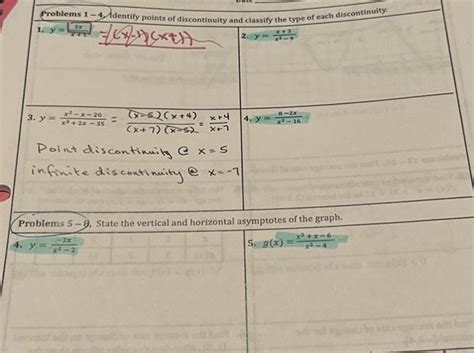 Problems 1 – 4, Identify points of discontinuity and classify the type of each discontinuity.
1. y = 2x
2. y = x+3 / x²−9
3. y = x²−x−20 / x²+2x−35 = (x-5)(x+4) / (x+7)(x-5) = x+4 / x+7
Point discontinuity @ x=5
infinite discontinuity @ x=-7
4. y = 8−2x / x²−16
Problems 5 – 8, State the vertical and horizontal asymptotes of the graph.
4. y = −3x / x²−2
5. g(x) = x²+x−6 / x²−4